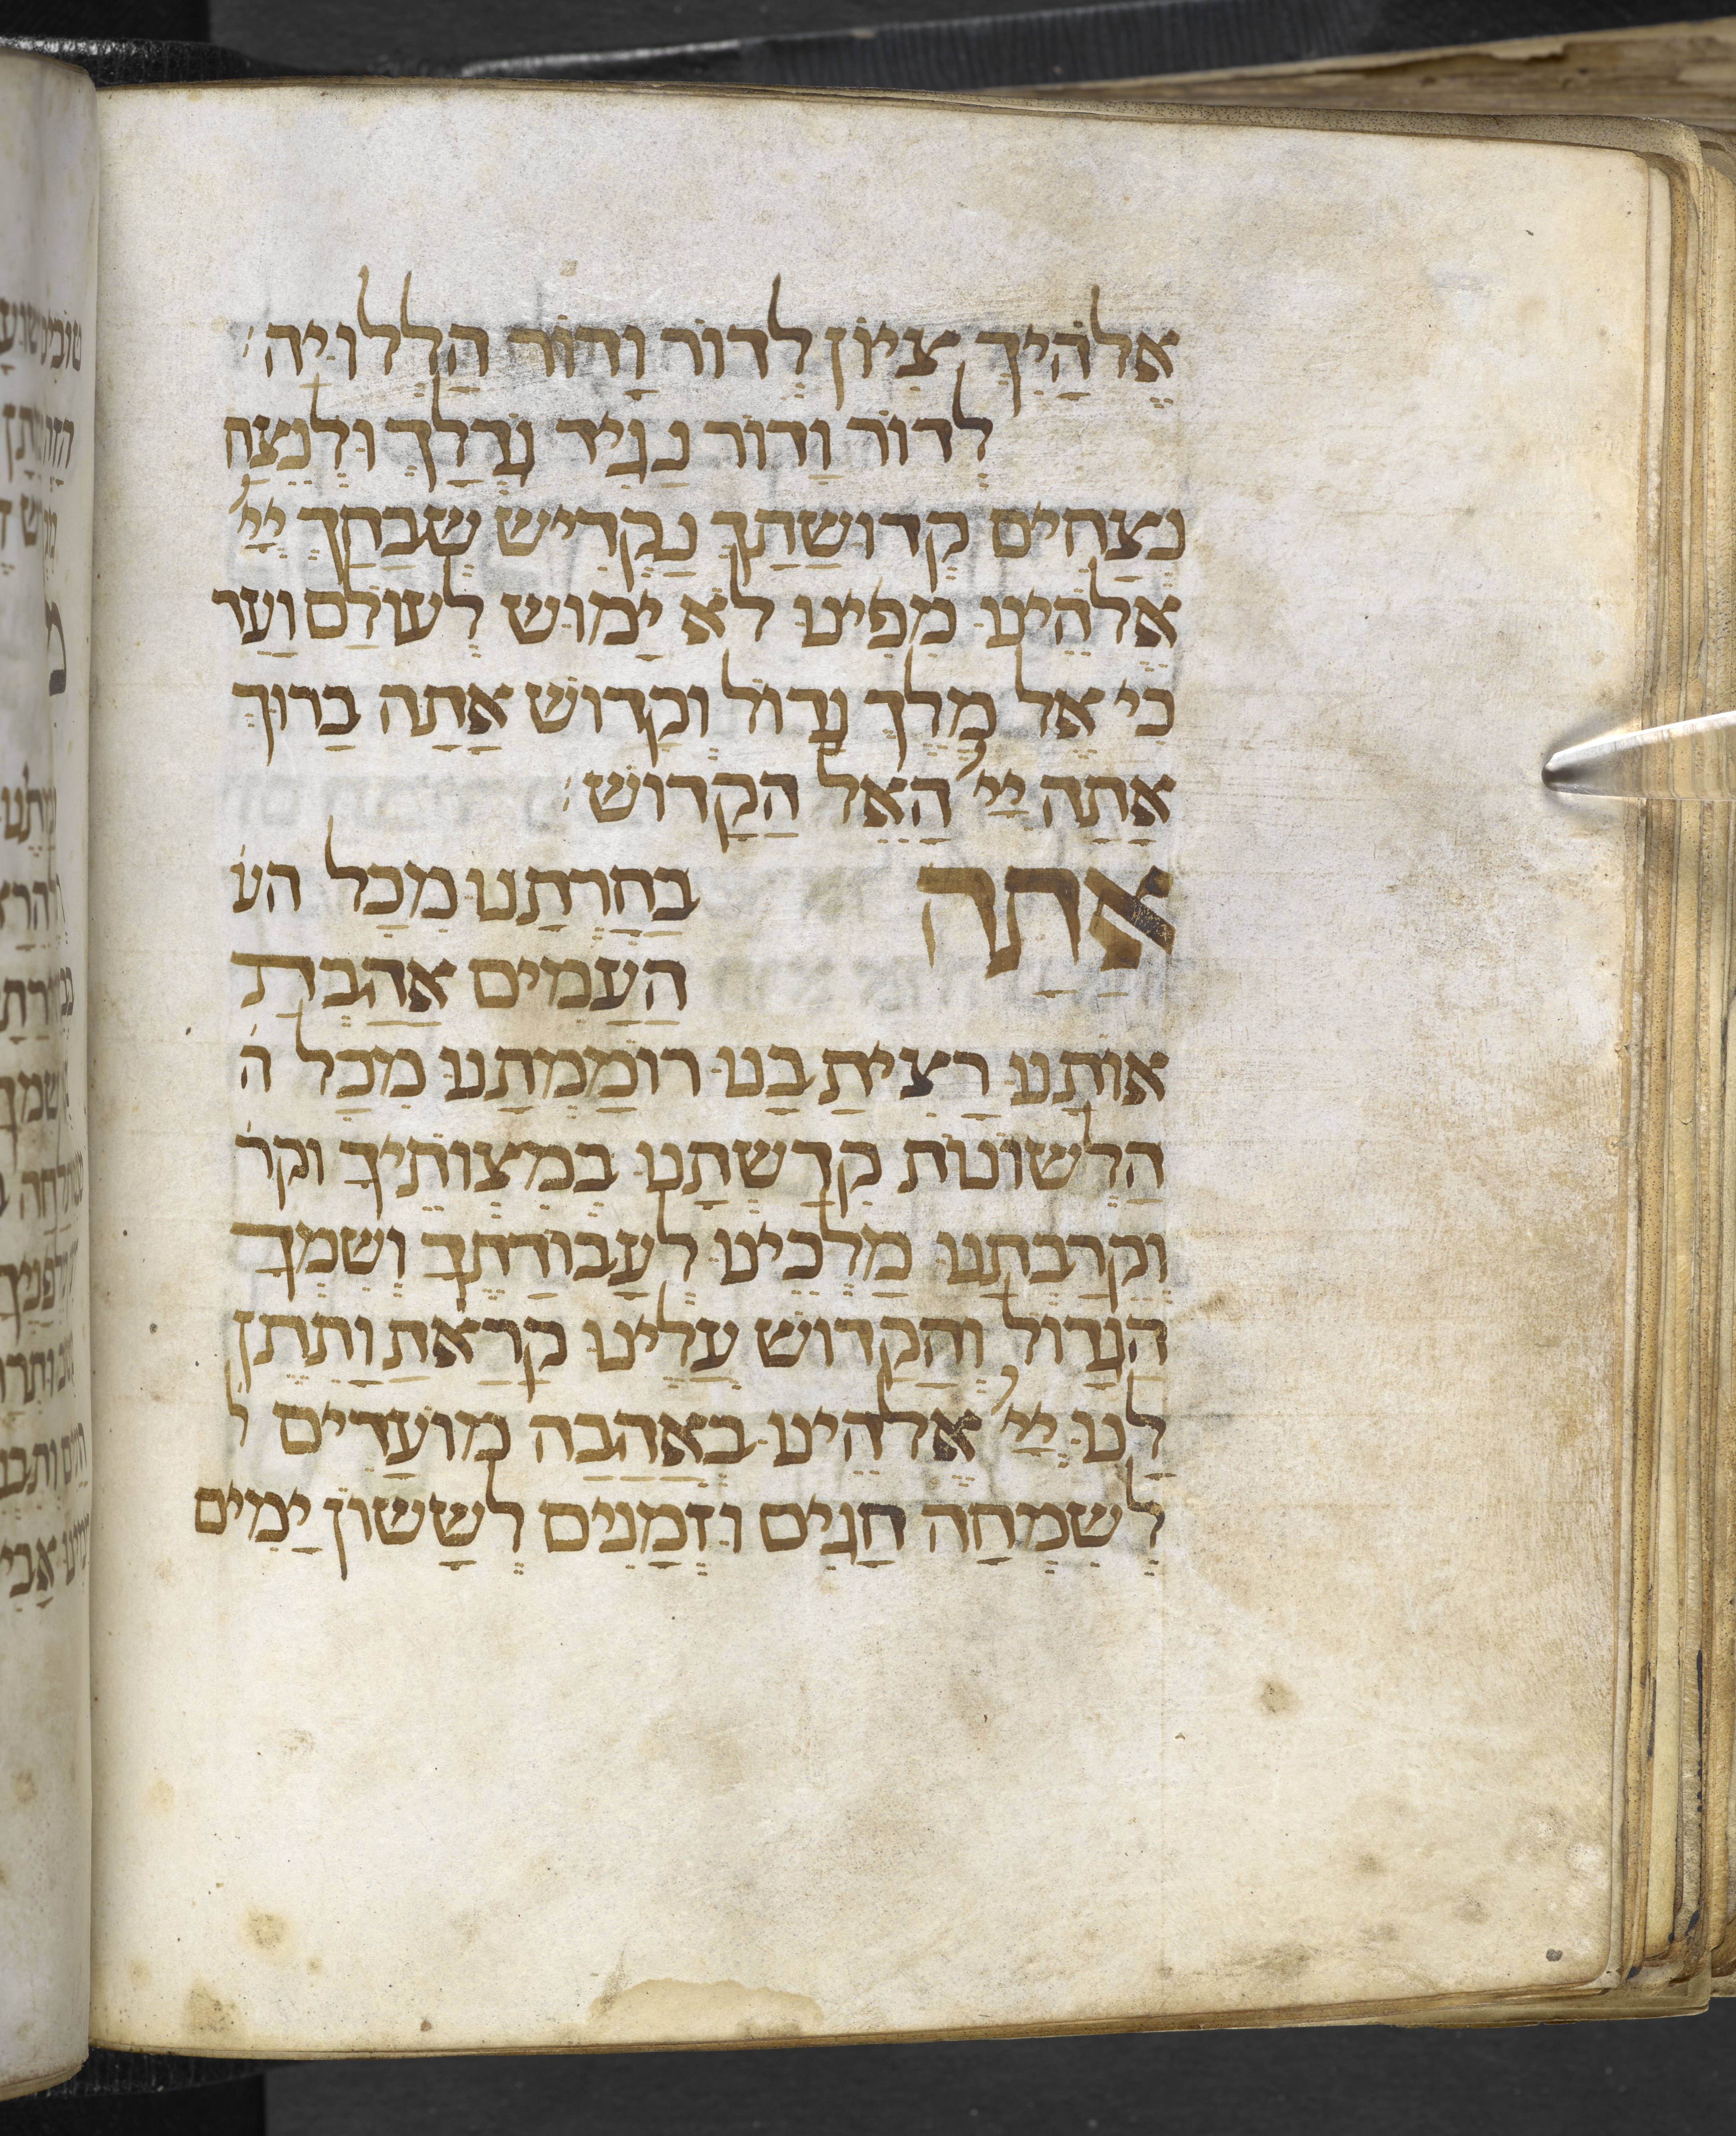 אֱלֹהַיִךְ צִיּוֹן לְדוֹר וָדוֹר הַלְלוּיָהּ׃
לְדוֹר וָדוֹר נַגִיד גָדְלֶךָ וּלְנֶצַח
נְצָחִים קְדוּשָׁתְךָ נַקְדִישׁ שְׁבָחֲךָ יְיָ
אֱלֹהֵינוּ מִפִינוּ לֹא יָמוּשׁ לְעוֹלָם וָעֶד
כִי אֵל מֶלֶךְ גָדוֹל וְקָדוֹשׁ אָתָה בָרוּךְ
אַתָה יְיָ הָאֵל הַקָדוֹשׁ׃
אַתָה בְחַרְתָנוּ מִכָל הע
הָעַמִים אָהַבְתָ
אוֹתָנוּ רָצִיתָ בָנוּ רוֹמַמְתָנוּ מִכָל ה
הַלְשׁוֹנוֹת קִדַשְׁתָנוּ בְמִצְוֹתֶיךָ וקר
וְקֵרַבְתָנוּ מַלְכֵינוּ לַעֲבוֹדָתֶךָ וְשִׁמְךָ
הַגָדוֹל וְהַקָדוֹשׁ עָלֵינוּ קָרָאתָ וַתִתֶן
לָנוּ יְיָ אֱלֹהֵינוּ בְאַהֲבָה מוֹעֲדִים ל
לְשִׂמְחָה חַגִים וּזְמַנִים לְשָׂשׂוֹן יָמִים